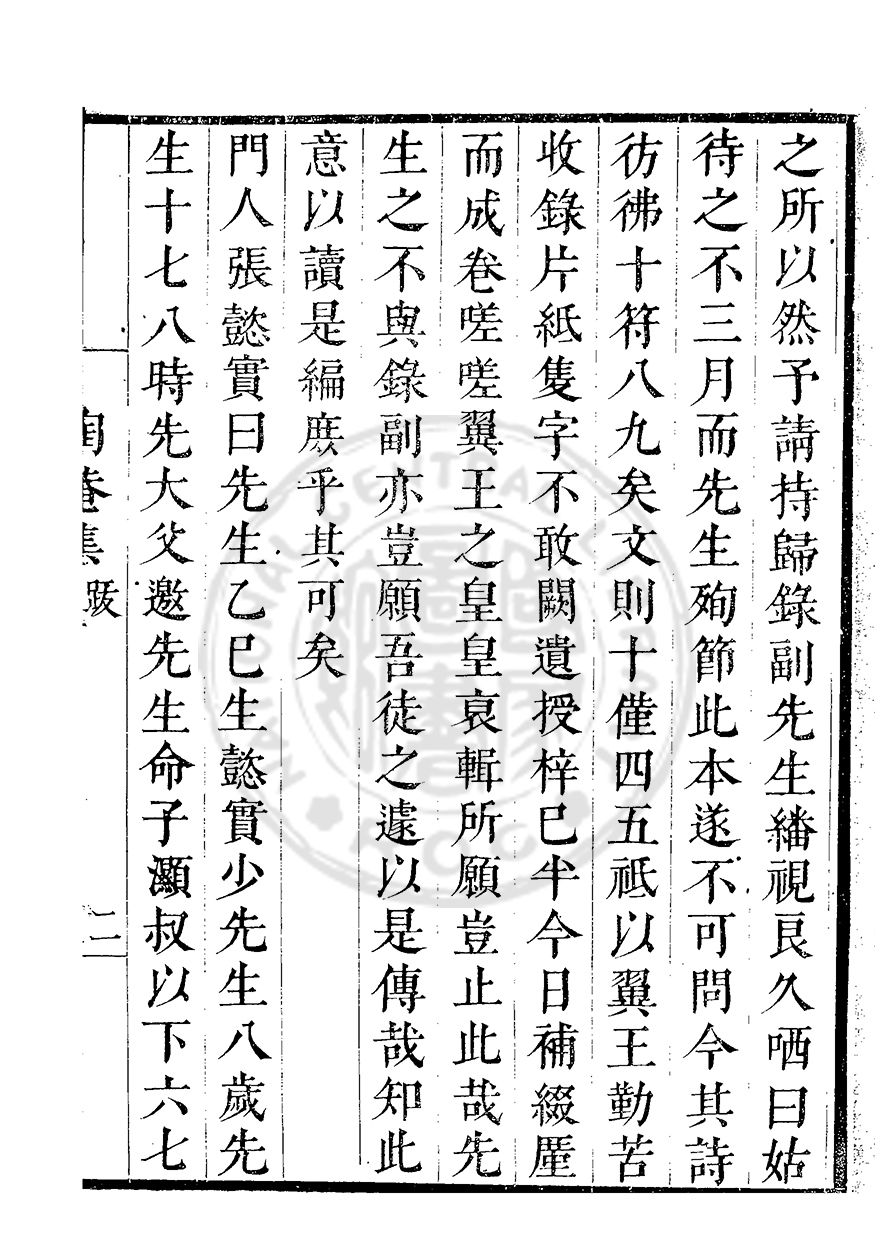 之所以然予請持歸錄副先生繙視良久哂曰姑
待之不三月而先生殉節此本遂不可問今其詩
彷彿十符八九矣文則十僅四五祗以翼王勤苦
收錄片紙隻字不敢闕遺授梓已半今日補綴厪
而成卷嗟嗟翼王之皇皇裒輯所願豈止此哉先
生之不與錄副亦豈願吾徒之遽以是傳哉知此
意以讀是編庶乎其可矣
門人張懿實曰先生乙巳生懿實少先生八歲先
生十七八時先大父邀先生命子灝叔以下六七
陶菴集 跋 二